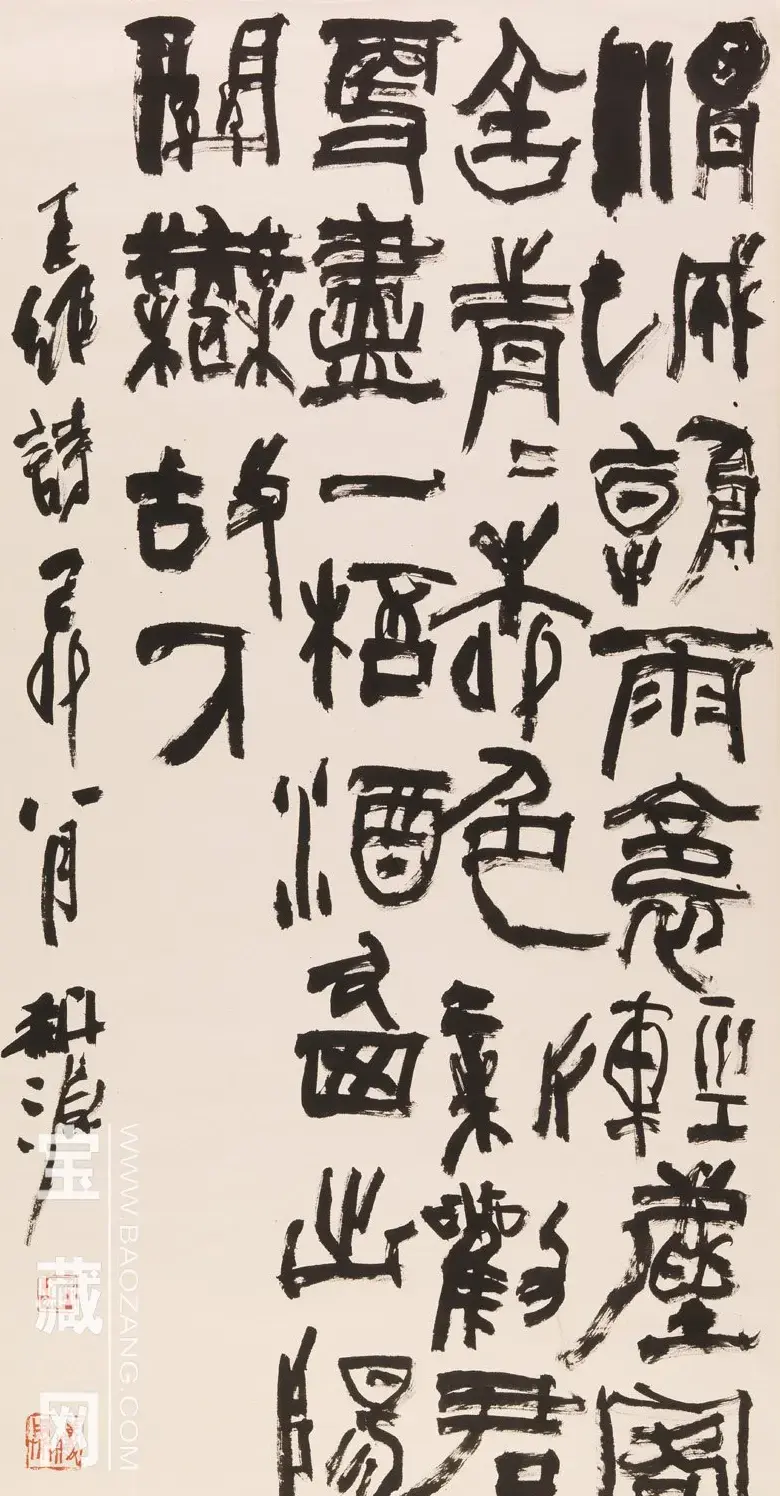 渭城朝雨裛輕塵客
舍青〻柳色新勸君
更盡一桮酒西出陽
關無故人
王維詩己卯八月
宝藏网
WWW.BAOZANG.COM